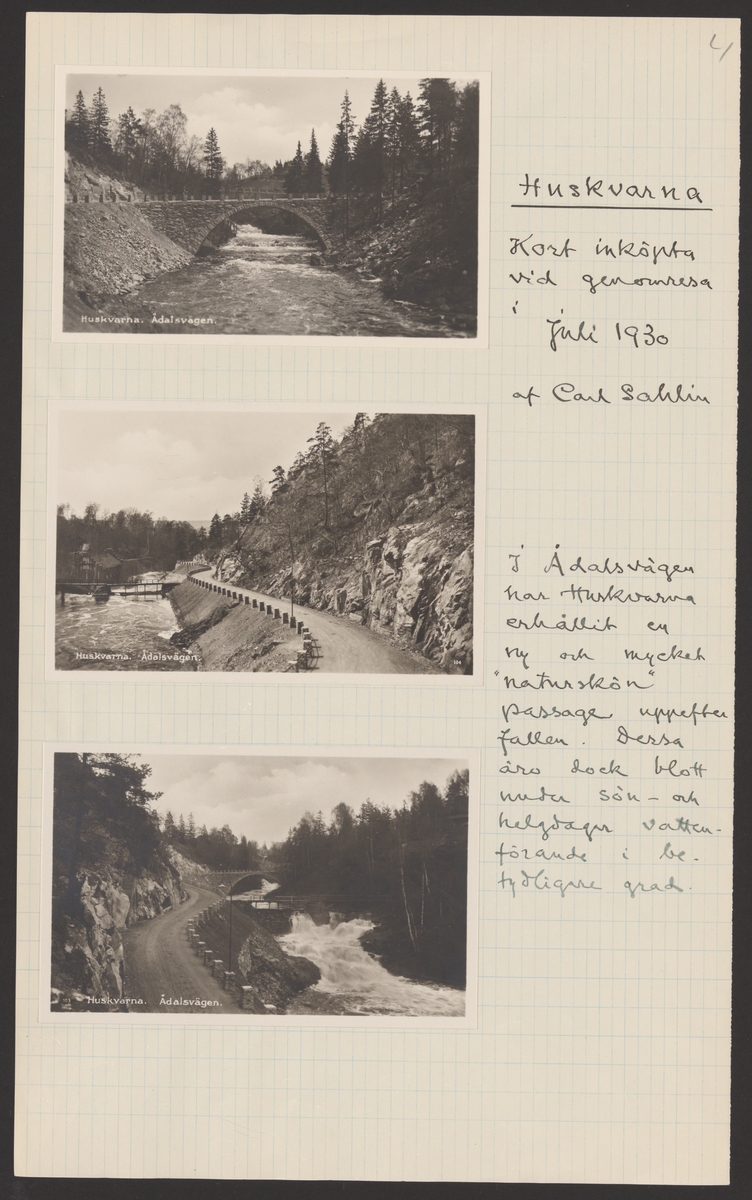 4
Huskvarna. Ådalsvägen.
Huskvarna
Kort inköpta
vid genomresa
i Juli 1930
af Carl Sahlin
Huskvarna. Ådalsvägen.
I Ådalsvägen
har Huskvarna
erhållit en
ny och mycket
"naturskön"
passage uppefter
fallen. Dessa
äro dock blott
under sön- och
helgdagar vatten-
förande i be-
tydligare grad.
Huskvarna. Ådalsvägen.